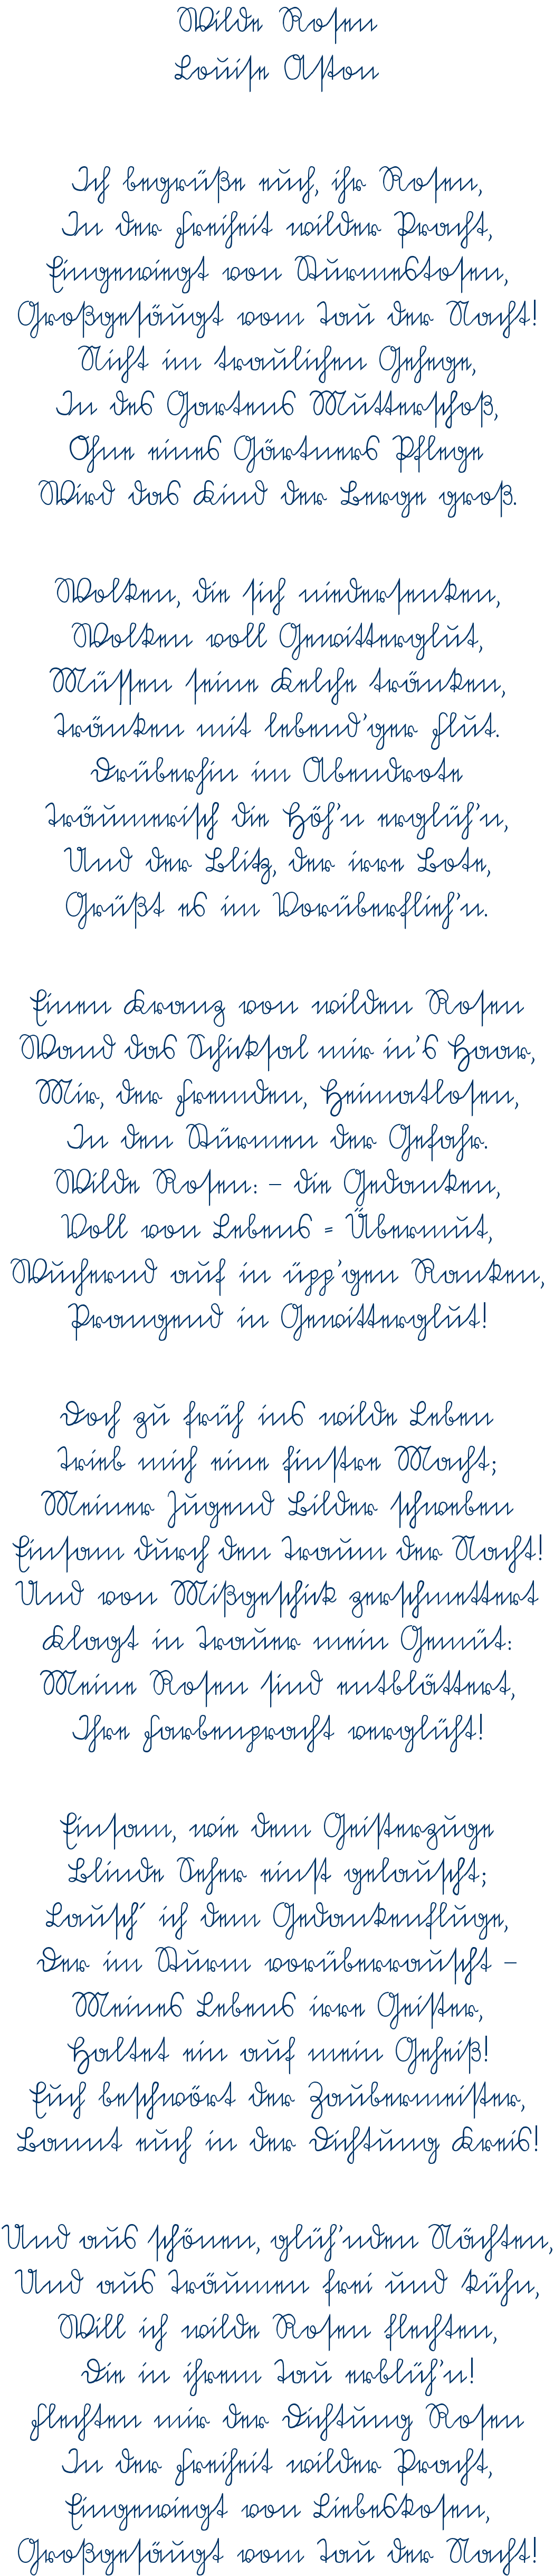 Wilde Rosen
Louise Aston
Ich begrüße euch, ihr Rosen,
In der Freiheit wilder Pracht,
Eingewiegt von Sturmestosen,
Großgesäugt vom Tau der Nacht!
Nicht im traulichen Gehege,
In des Gartens Mutterschoß,
Ohne eines Gärtners Pflege
Wird das Kind der Berge groß.
Wolken, die sich niedersenken,
Wolken voll Gewitterglut,
Müssen seine Kelche tränken,
Tränken mit lebend'ger Flut.
Drüberhin im Abendrote
Träumerisch die Höh'n erglüh'n,
Und der Blitz, der irre Bote,
Grüßt es im Vorüberflieh'n.
Einen Kranz von wilden Rosen
Wand das Schicksal mir in's Haar,
Mir, der Fremden, Heimatlosen,
In den Stürmen der Gefahr.
Wilde Rosen: – die Gedanken,
Voll von Lebens = Übermut,
Wuchernd auf in üpp'gen Ranken,
Prangend in Gewitterglut!
Doch zu früh ins wilde Leben
Trieb mich eine finstre Macht;
Meiner Jugend Bilder schweben
Einsam durch den Traum der Nacht!
Und von Mißgeschick zerschmettert
Klagt in Trauer mein Gemüt:
Meine Rosen sind entblättert,
Ihre Farbenpracht verglüht!
Einsam, wie dem Geisterzuge
Blinde Seher einst gelauscht;
Lausch´ ich dem Gedankenfluge,
Der im Sturm vorüberrauscht –
Meines Lebens irre Geister,
Haltet ein auf mein Geheiß!
Euch beschwört der Zaubermeister,
Bannt euch in der Dichtung Kreis!
Und aus schönen, glüh'nden Nächten,
Und aus Träumen frei und kühn,
Will ich wilde Rosen flechten,
Die in ihrem Tau erblüh'n!
Flechten mir der Dichtung Rosen
In der Freiheit wilder Pracht,
Eingewiegt von Liebeskosen,
Großgesäugt vom Tau der Nacht!